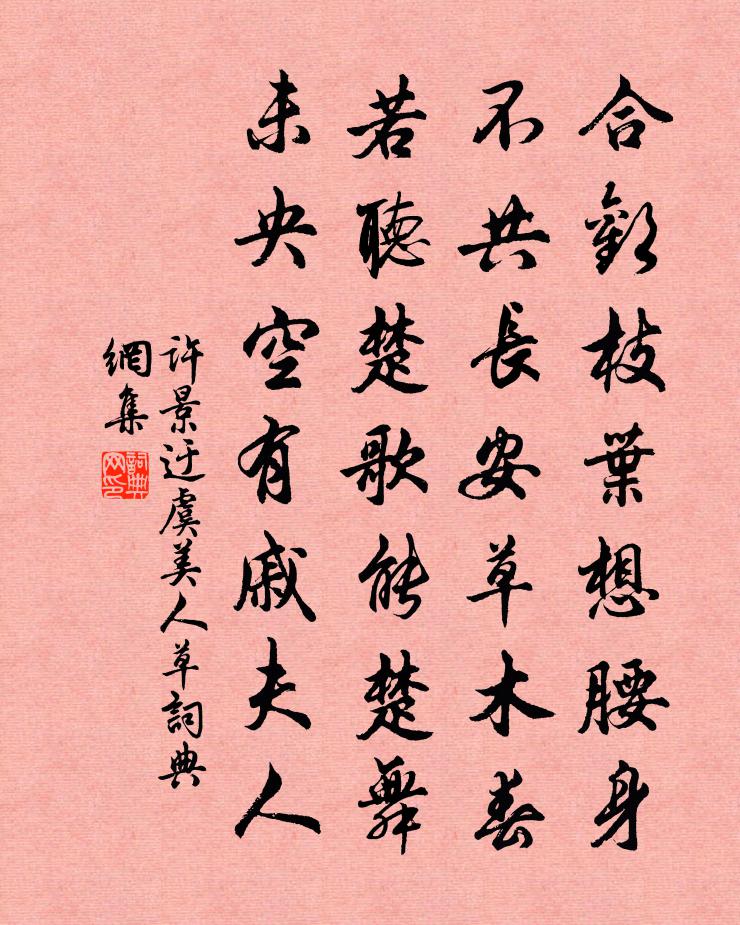 合歡枝葉想腰身
不共長安草木春
若聽楚歌能楚舞
未央空有戚夫人
許景迂虞美人草詞典
網集
詞典
网印